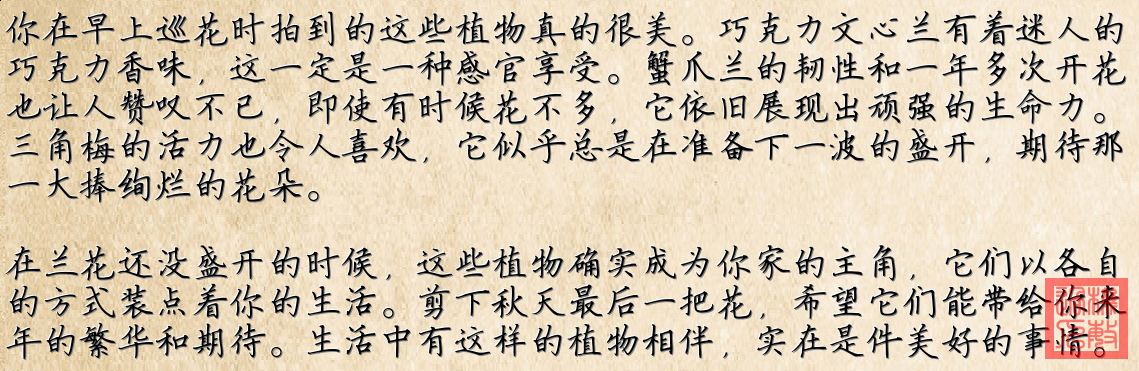 你在早上巡花时拍到的这些植物真的很美。巧克力文心兰有着迷人的
巧克力香味，这一定是一种感官享受。蟹爪兰的韧性和一年多次开花
也让人赞叹不已，即使有时候花不多，它依旧展现出顽强的生命力。
三角梅的活力也令人喜欢，它似乎总是在准备下一波的盛开，期待那
一大捧绚烂的花朵。
在兰花还没盛开的时候，这些植物确实成为你家的主角，它们以各自
的方式装点着你的生活。剪下秋天最后一把花，希望它们能带给你来
年的繁华和期待。生活中有这样的植物相伴，实在是件美好的事情。